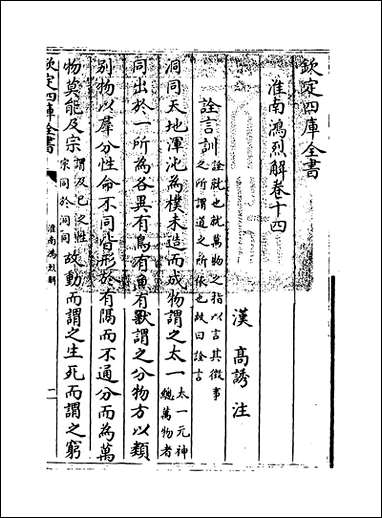 欽定四庫全書
淮南鴻烈解卷十四
漢 高誘 注
詮言訓 詮就也就萬物之指以言其徵事
之所謂道之所依也故曰詮言
洞同天地渾沌為樸未造而成物謂之太一 太一元神
總萬物者
同出於一所為各異有鳥有魚有獸謂之分物方以類
别物以羣分性命不同皆形於有隅而不通分而為萬
物莫能及宗 謂及已之性
宗同於洞同 故動而謂之生死而謂之窮
欽定四庫全書
淮南鴻烈解